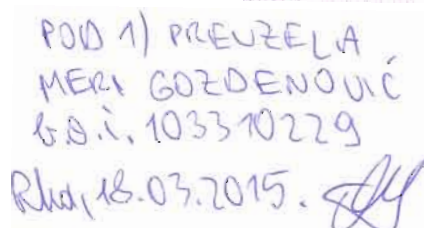 POD 1) PREUZELA
MERI GOZDENOVIĆ
b.o.i. 103310229
Rka, 18.03.2015.